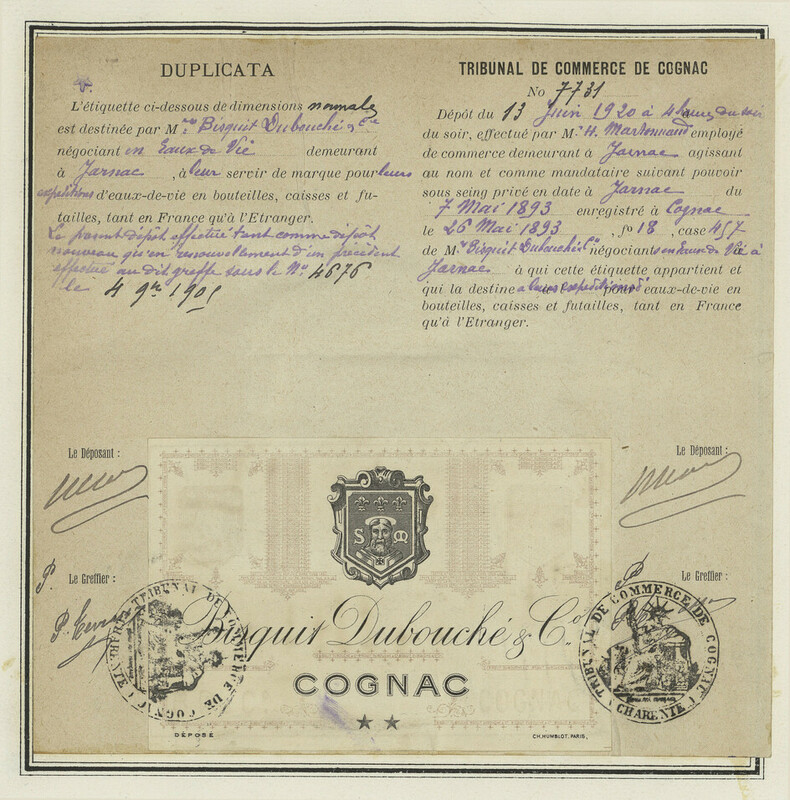 DUPLICATA
L'étiquette ci-dessous de dimensions normales
est destinée par M.rs Bisquit Dubouché & Cie
négociant en Eaux de Vie demeurant
à Jarnac, à leur servir de marque pour leurs
expéditions d'eaux-de-vie en bouteilles, caisses et fu-
tailles, tant en France qu'à l'Etranger.
Le présent dépôt effectué tant comme dépôt
nouveau qu'en renouvellement d'un précédent
effectué au dit greffe sous le No. 4676
le 4 9bre 1905
TRIBUNAL DE COMMERCE DE COGNAC
No 7731
Dépôt du 13 Juin 1920 à 4 heures du soir
du soir, effectué par M. H. employé
de commerce demeurant à Jarnac agissant
au nom et comme mandataire suivant pouvoir
sous seing privé en date à Jarnac du
7 Mai 1893 enregistré à Cognac
le 26 Mai 1893, fo 18, case 457
de M. Bisquit Dubouché & Co négociants en Eaux de Vie à
Jarnac à qui cette étiquette appartient et
qui la destine à leurs expéditions d'eaux-de-vie en
bouteilles, caisses et futailles, tant en France
qu'à l'Etranger.
Le Déposant :
Le Déposant :
P. Le Greffier :
P. Le Greffier :
S M
Bisquit Dubouché & Co.
COGNAC
DÉPOSÉ
CH. HUMBLOT, PARIS.
TRIBUNAL DE COMMERCE DE COGNAC (CHARENTE)
TRIBUNAL DE COMMERCE DE COGNAC (CHARENTE)